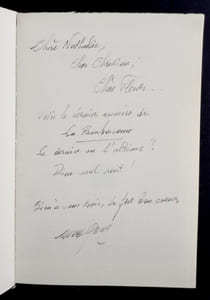 Chère Nathalie,
Cher Christian,
Chère Fleur...
voici le dernier numéro de
La Barbacane
le dernier ou l'ultime ?
Dieu seul sait !
à vous trois, de fort bon coeur.